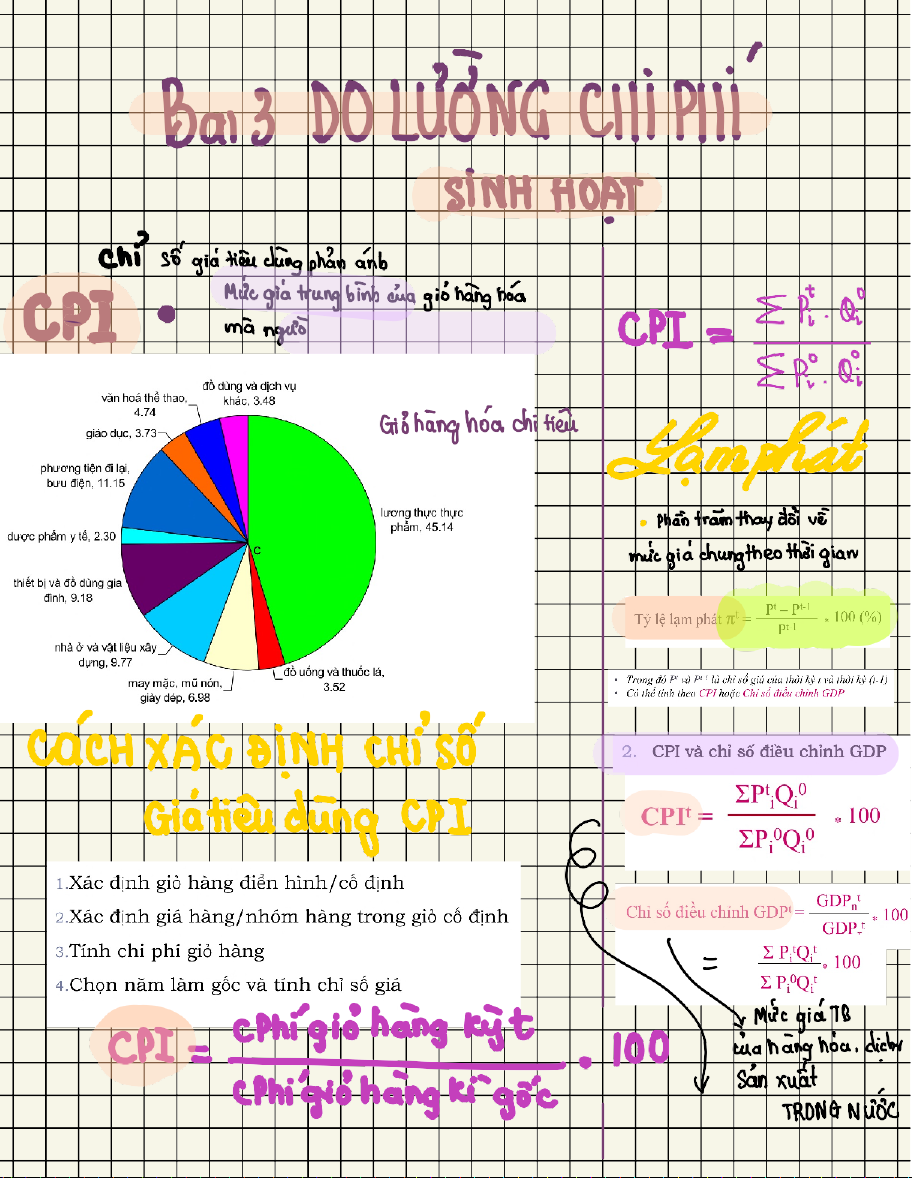 Bai 3 DO LƯỜNG CHI PHÍ
SINH HOẠT
Chỉ số giá tiêu dùng phản ánh
CPI • Mức giá trung bình của giỏ hàng hóa
mà người
CPI = Σ Pᵢᵗ . Qᵢ⁰ / Σ Pᵢ⁰ . Qᵢ⁰
Giỏ hàng hóa chi tiêu
đồ dùng và dịch vụ
khác, 3.48
văn hoá thể thao,
4.74
giáo dục, 3.73
phương tiện đi lại,
bưu điện, 11.15
dược phẩm y tế, 2.30
thiết bị và đồ dùng gia
đình, 9.18
nhà ở và vật liệu xây
dựng, 9.77
may mặc, mũ nón,
giày dép, 6.98
đồ uống và thuốc lá,
3.52
lương thực thực
phẩm, 45.14
C
CÁCH XÁC ĐỊNH CHỈ SỐ
Giá tiêu dùng CPI
1.Xác định giỏ hàng điển hình/cố định
2.Xác định giá hàng/nhóm hàng trong giỏ cố định
3.Tính chi phí giỏ hàng
4.Chọn năm làm gốc và tính chỉ số giá
CPI = CPhí giỏ hàng kỳ t / CPhí giỏ hàng kì gốc . 100
Lạm phát
• phần trăm thay đổi về
mức giá chung theo thời gian
Tỷ lệ lạm phát πᵗ = Pᵗ – Pᵗ⁻¹ / Pᵗ⁻¹ * 100 (%)
• Trong đó Pᵗ và Pᵗ⁻¹ là chỉ số giá của thời kỳ t và thời kỳ (t-1)
• Có thể tính theo CPI hoặc Chỉ số điều chỉnh GDP
2. CPI và chỉ số điều chỉnh GDP
CPIᵗ = ΣPᵗᵢQᵢ⁰ / ΣPᵢ⁰Qᵢ⁰ * 100
Chỉ số điều chỉnh GDPᵗ = GDPₙᵗ / GDPᵣᵗ * 100
= Σ PᵢᵗQᵢᵗ / Σ Pᵢ⁰Qᵢᵗ * 100
Mức giá TB
của hàng hóa, dịch
Sản xuất
TRONG NƯỚC